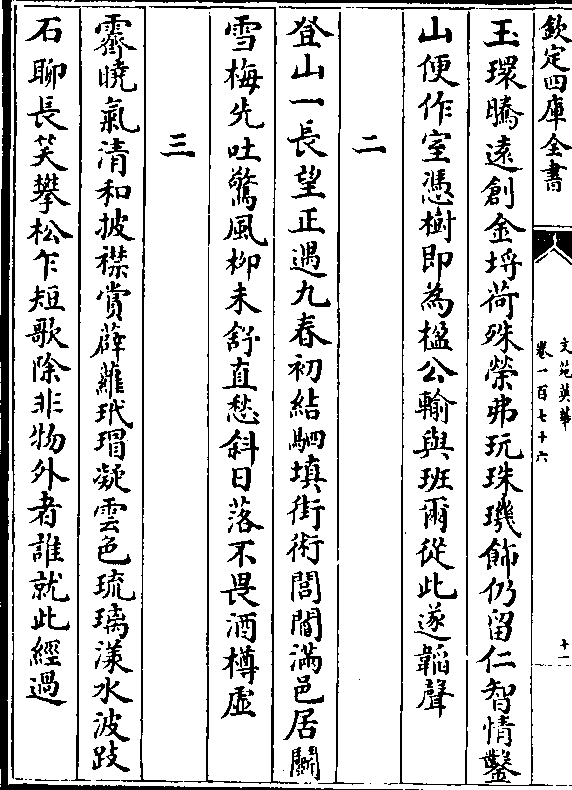 欽定四庫全書
文苑英華
卷一百七十六
十一
玉環騰遠創金埒荷殊榮弗玩珠璣飾仍留仁智情鑿
山便作室憑樹即為楹公輸與班爾從此遂韜聲
二
登山一長望正遇九春初結駟填街術閭閻滿邑居鬭
雪梅先吐驚風柳未舒直愁斜日落不畏酒樽虛
三
霽曉氣清和披襟賞薜蘿玳瑁凝雲色琉璃漾水波跂
石聊長笑攀松乍短歌除非物外者誰就此經過